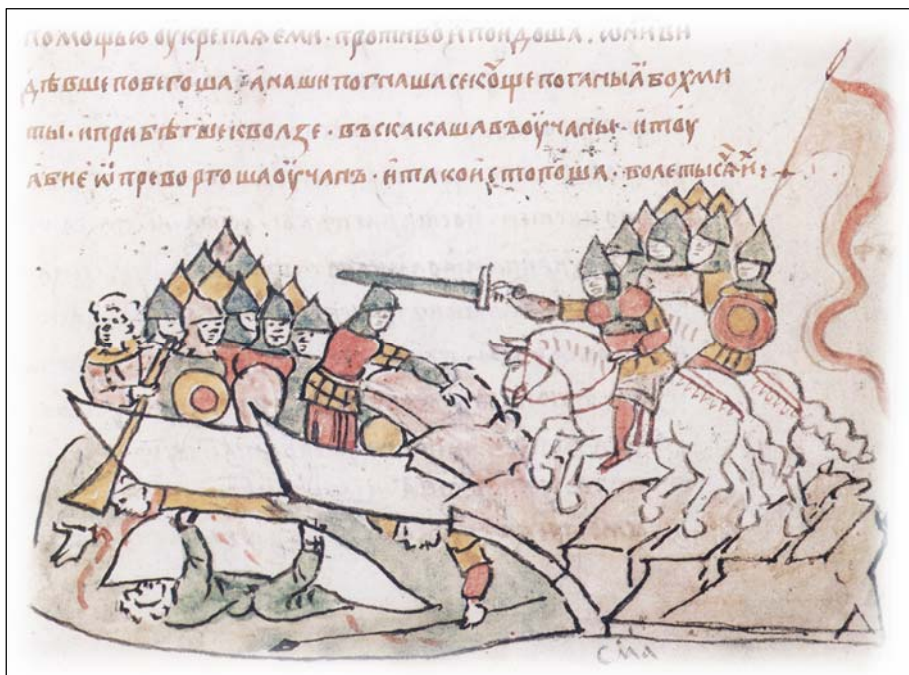 помощью оукрепляеми · противо и поидоша . ѡни ви
дѣвше побегоша . а наши погнаша секꙋще поганыѧ бохми
ты · и прибѣгше к волзе · въскакаша въ оучаны · и тоу
абие ѿпреворгоша оучанъ · и тако истопоша · болетысѧ